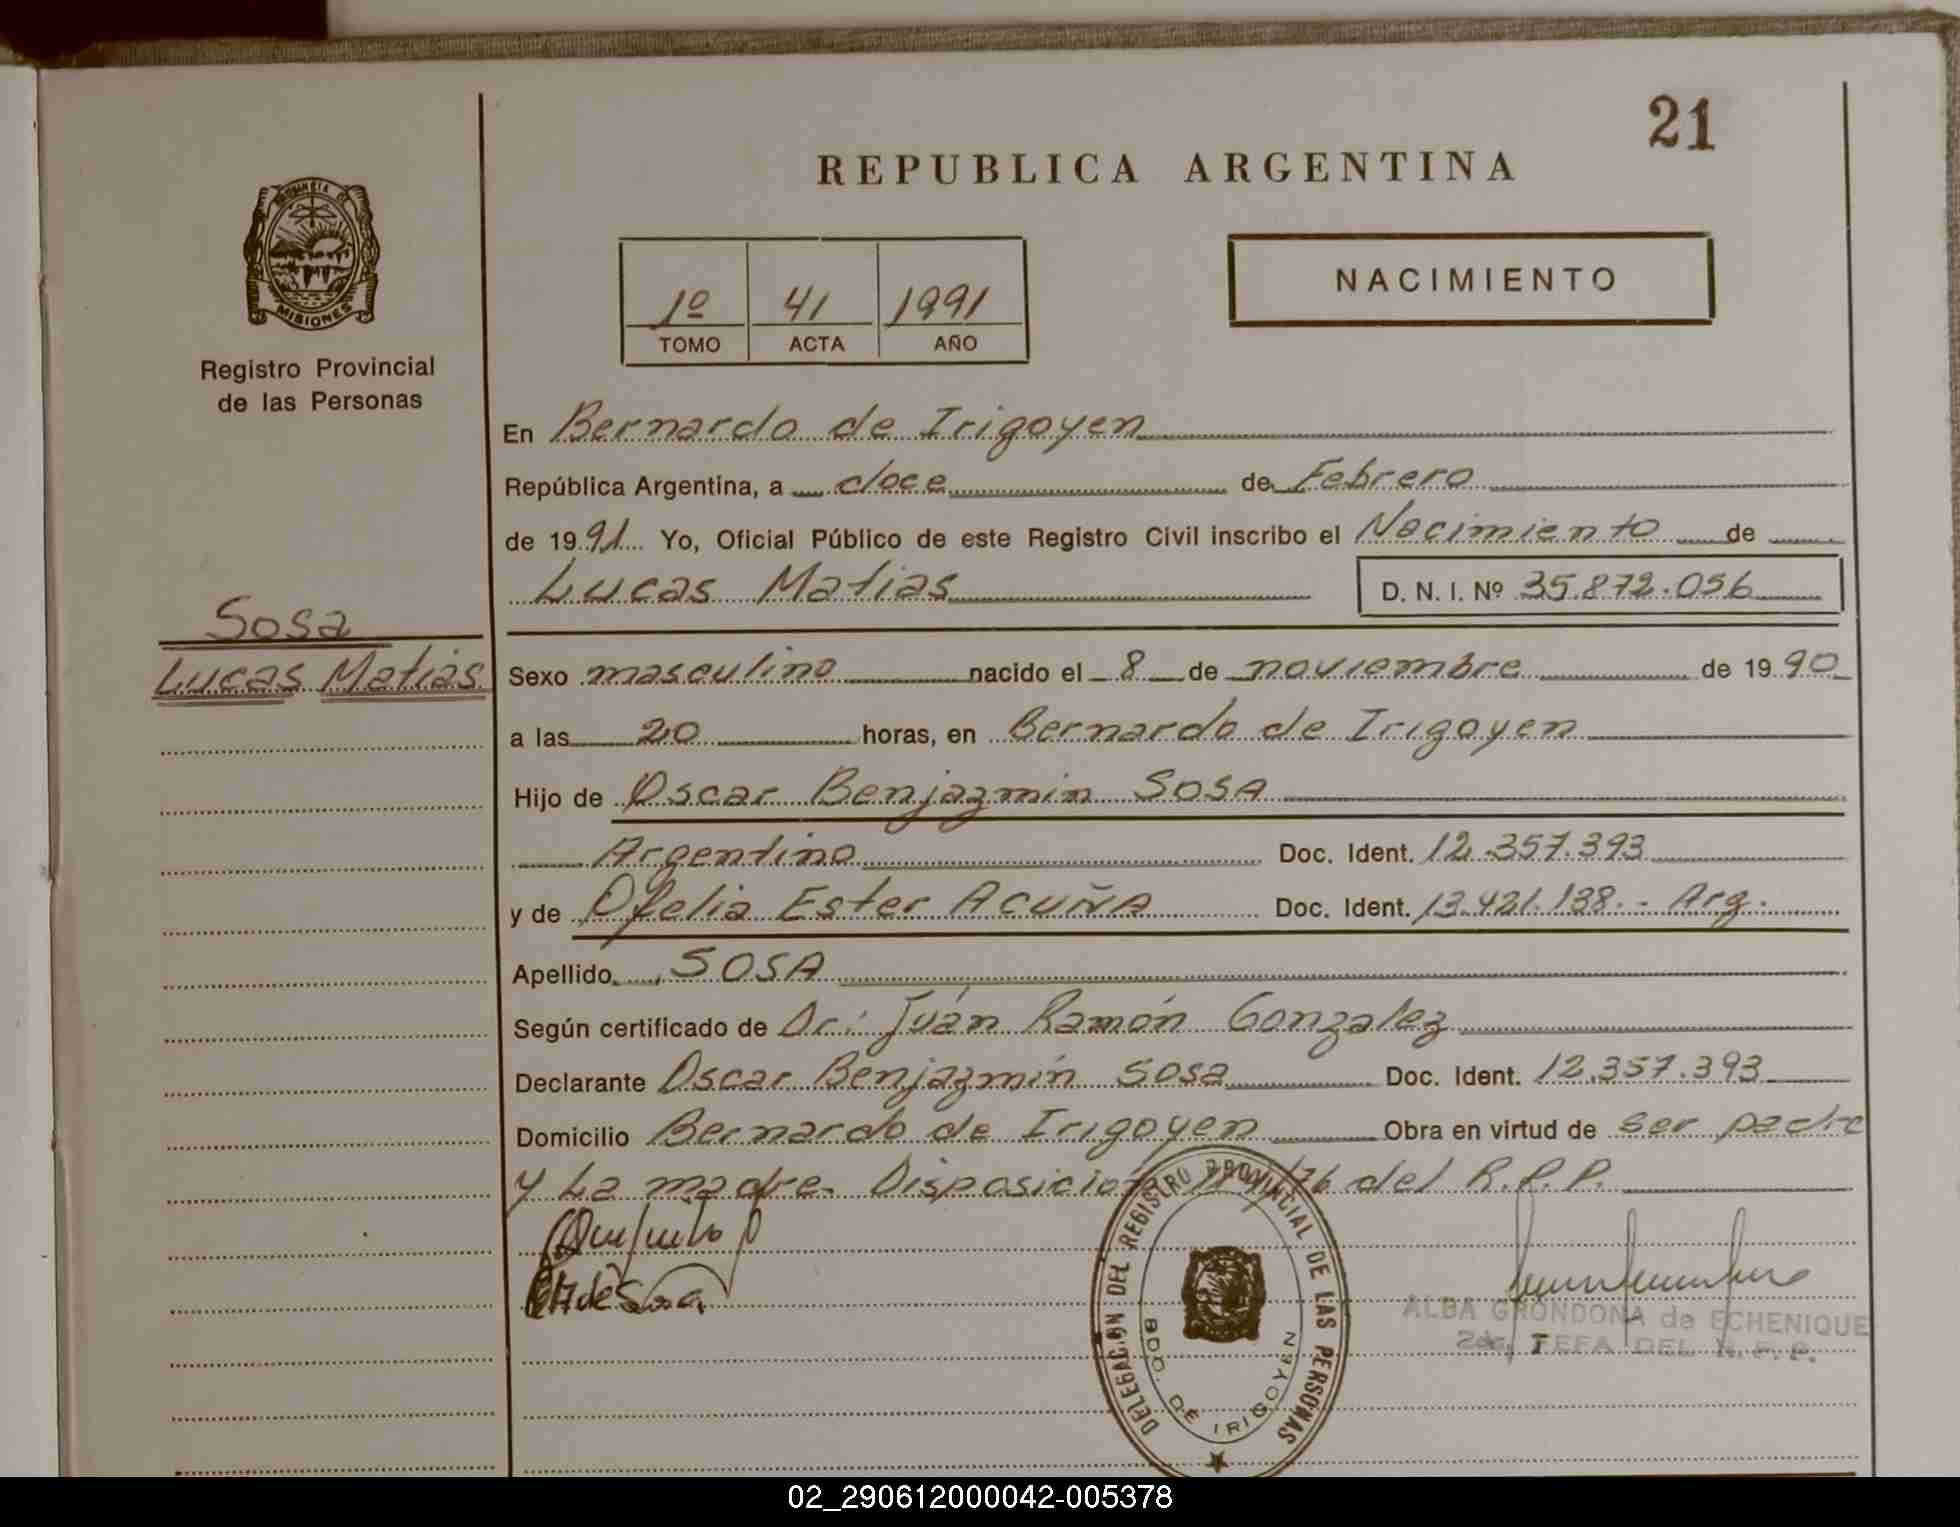 21
REPUBLICA ARGENTINA
MISIONES
Registro Provincial
de las Personas
1º 41 1991
TOMO ACTA AÑO
NACIMIENTO
En Bernardo de Irigoyen
República Argentina, a doce de Febrero
de 1991 Yo, Oficial Público de este Registro Civil inscribo el Nacimiento de
Lucas Matias D. N. I. Nº 35.872.056
Sosa
Lucas Matias
Sexo masculino nacido el 8 de noviembre de 1990
a las 20 horas, en Bernardo de Irigoyen
Hijo de Oscar Benjazmin SOSA
Argentino Doc. Ident. 12.357.393
y de Ofelia Ester ACUÑA Doc. Ident. 13.421.138.- Arg.
Apellido SOSA
Según certificado de Dr: Juán Ramón Gonzalez
Declarante Oscar Benjazmín Sosa Doc. Ident. 12.357.393
Domicilio Bernardo de Irigoyen Obra en virtud de ser padre
y La madre. Disposición /76 del R.P.P.
DELEGACION DEL REGISTRO PROVINCIAL DE LAS PERSONAS
BDO. DE IRIGOYEN
de Sosa
ALBA GRONDONA de ECHENIQUE
JEFA DEL R.P.P.
02_290612000042-005378